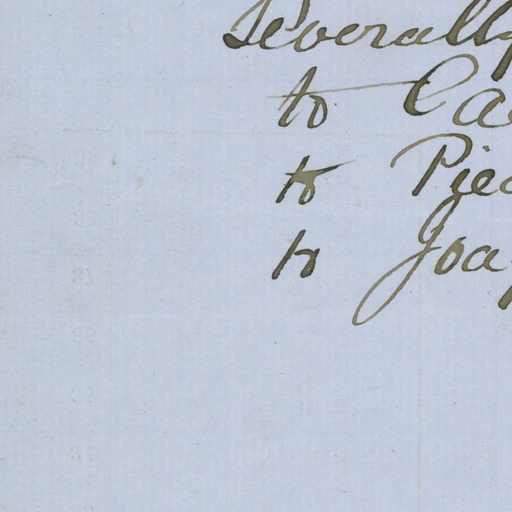 Severally
to Ca
to Pie
to Joa